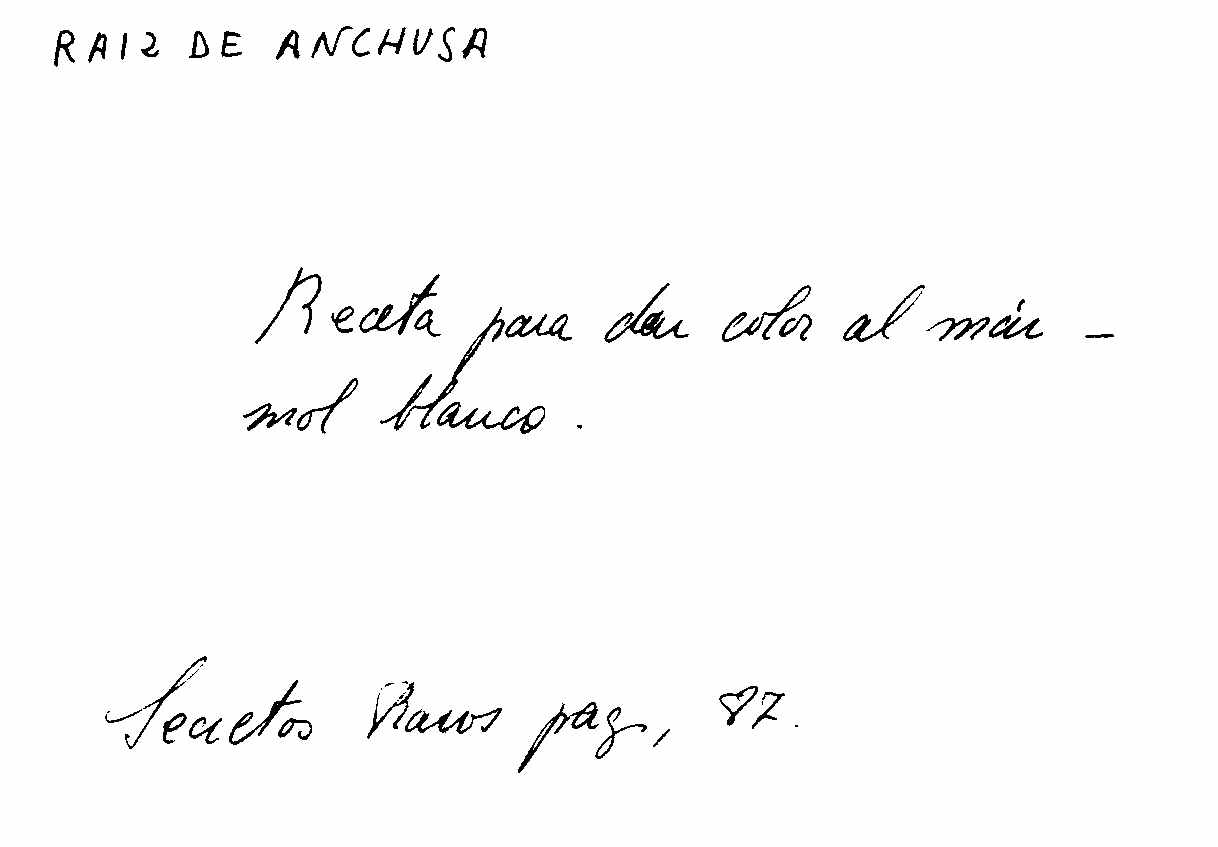 RAIZ DE ANCHUSA
Receta para dar color al már-
mol blanco.
Secretos Raros pag, 87.